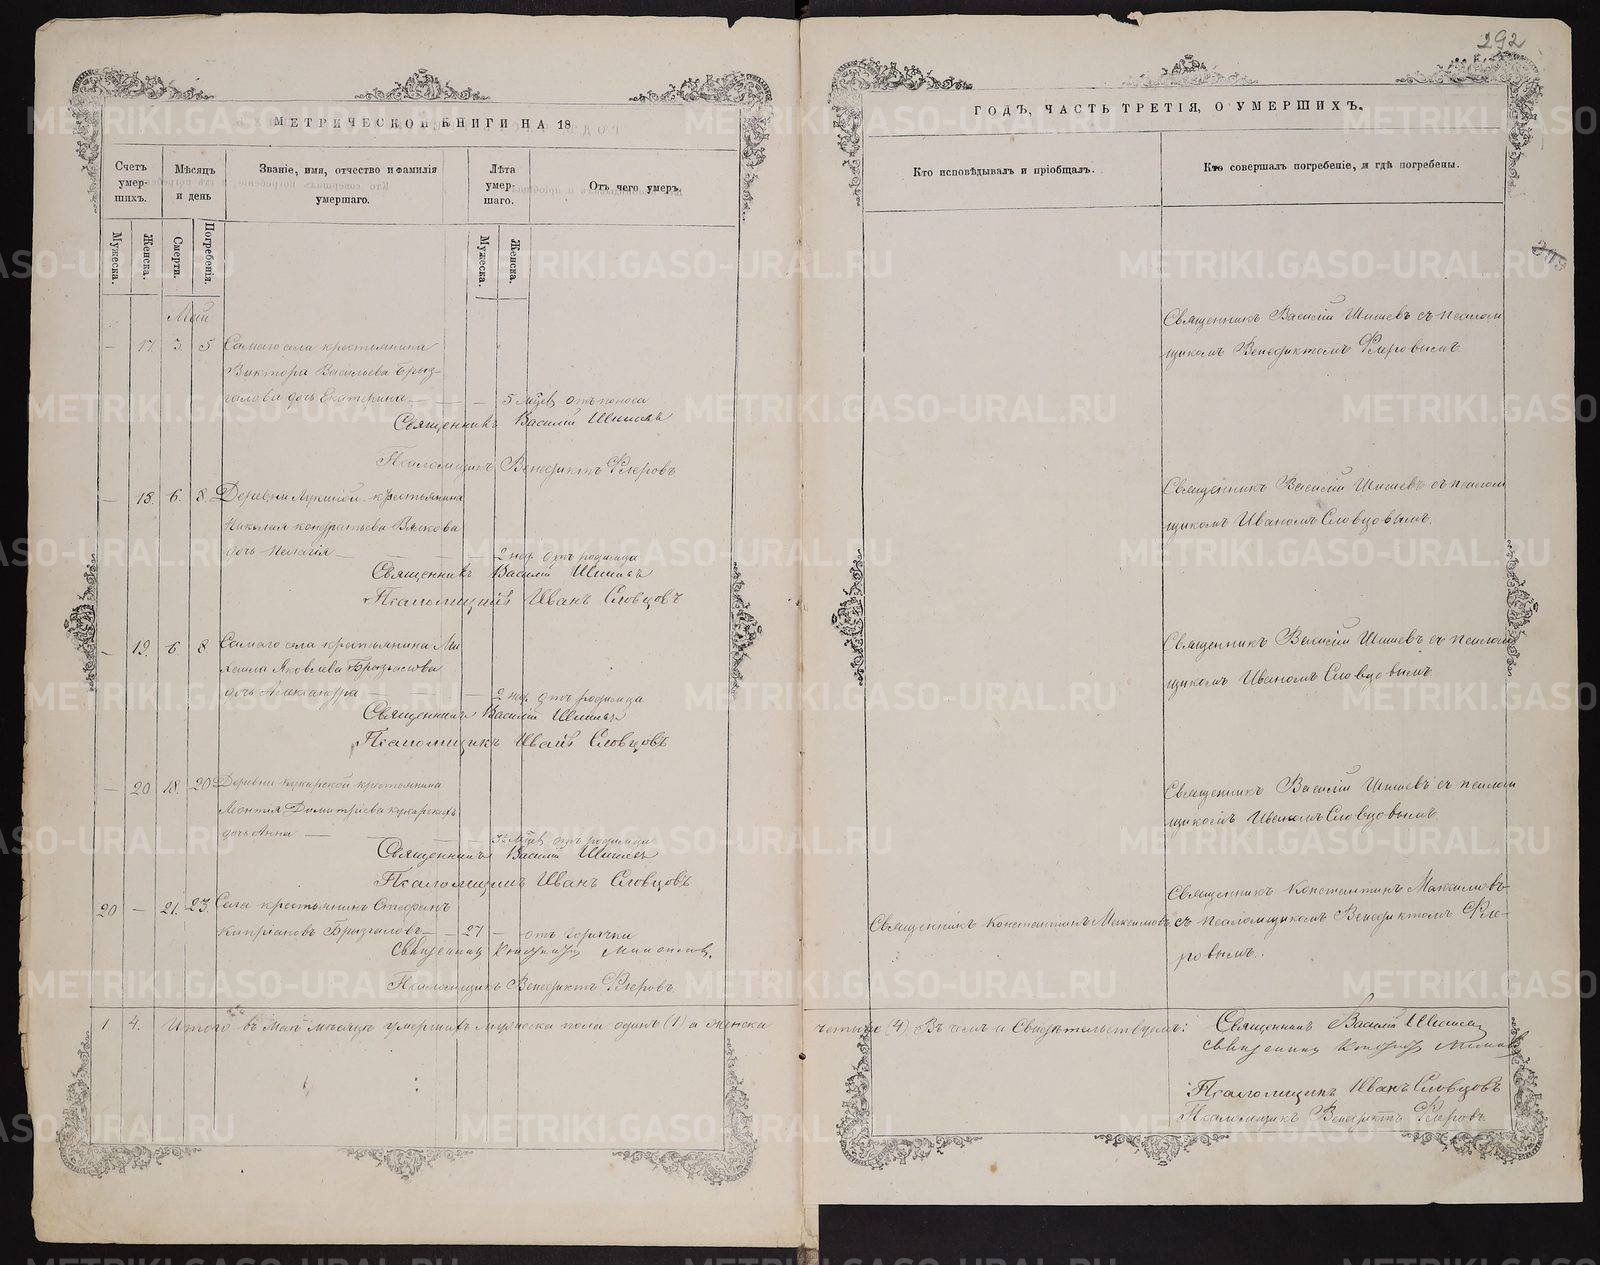 292
МЕТРИЧЕСКОЙ КНИГИ НА 18
ГОДЪ, ЧАСТЬ ТРЕТІЯ, О УМЕРШИХЪ.
Счетъ умер-шихъ.
Мѣсяцъ и день
Званіе, имя, отчество и фамилія умершаго.
Лѣта умер-шаго.
Отъ чего умеръ.
Кто исповѣдывалъ и пріобщалъ.
Кто совершалъ погребеніе, и гдѣ погребены.
Мужеска.
Женска.
Смерти.
Погребенія.
Мужеска.
Женска.
Май
— 17. 3. 5 Самаго села крестьянина
Виктора Васильева Брыз-
галова дочь Екатерина — — — 5 мѣсе. отъ поноса
Священникъ Василій Шишевъ
Псаломщикъ Венедиктъ Флеровъ
Священникъ Василій Шишевъ съ псалом
щикомъ Венедиктомъ Флеровымъ.
— 18. 6. 8. Деревни крестьянина
Николая Кондратьева
дочь Пелагія — — — — 2 нед. отъ родимца
Священникъ Василій Шишевъ
Псаломщикъ Иванъ Словцовъ
Священникъ Василій Шишевъ съ псалом
щикомъ Иваномъ Словцовымъ.
— 19. 6 8 Самаго села крестьянина Ми
хаила Яковлева
дочь Александра — — 2 нед. отъ родимца
Священникъ Василій Шишевъ
Псаломщикъ Иванъ Словцовъ
Священникъ Василій Шишевъ съ псалом
щикомъ Иваномъ Словцовымъ.
— 20 18. 20 Деревни Кукарской крестьянина
Леонтія Димитріева Кукарскихъ
дочь Анна — — мѣсе. отъ родимца
Священникъ Василій Шишевъ
Псаломщикъ Иванъ Словцовъ
Священникъ Василій Шишевъ съ псалом
щикомъ Иваномъ Словцовымъ.
20 — 21. 23. Села крестьянинъ Стефанъ
Кипріановъ Брызгаловъ — — 27 — отъ горячки
Священникъ Константинъ Максимовъ.
Псаломщикъ Венедиктъ Флеровъ
Священникъ Константинъ Максимовъ
Священникъ Константинъ Максимовъ
съ псаломщикомъ Венедиктомъ Фле-
ровымъ.
1. 4. Итого въ Маѣ мѣсяцѣ умершихъ мужеска пола одинъ (1) а женска
четыре (4) Въ чемъ и Свидѣтельствуемъ: Священникъ Василій Шишевъ
Священникъ Константинъ Максимовъ
Псаломщикъ Иванъ Словцовъ
Псаломщикъ Венедиктъ Флеровъ
METRIKI.GASO-URAL.RU